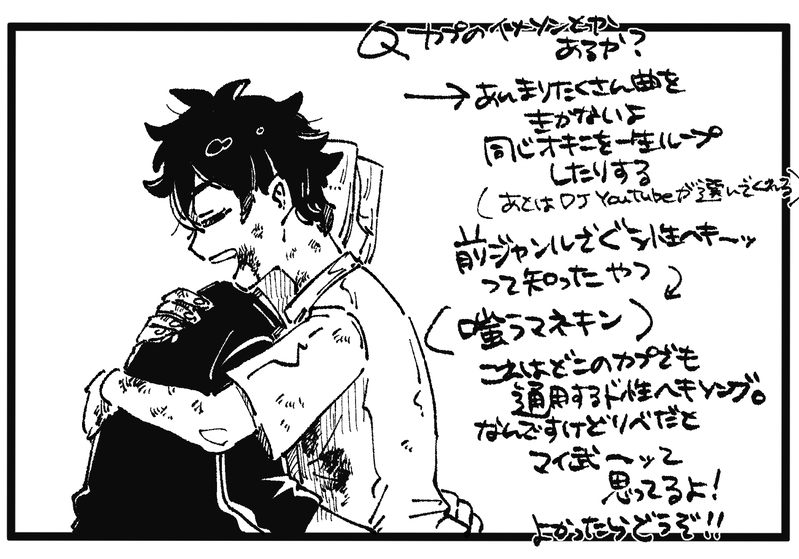 Q カプのイメソンとか
あるか?
→あんまりたくさん曲を
きかないよ
同じオキニを一生ループ
したりする
(あとはDJ YouTubeが選んでくれる)
前ジャンルでぐう性ヘキーッ
って知ったやつ
(嗤うマネキン)
これはどこのカプでも
通用するド性ヘキソング。
なんですけどリベだと
マイ武〜ッて
思ってるよ!
よかったらどうぞ!!